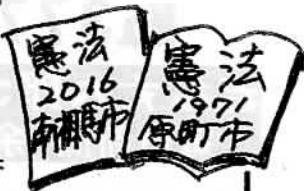 憲法
2016
南相馬市
憲法
1971
原町市